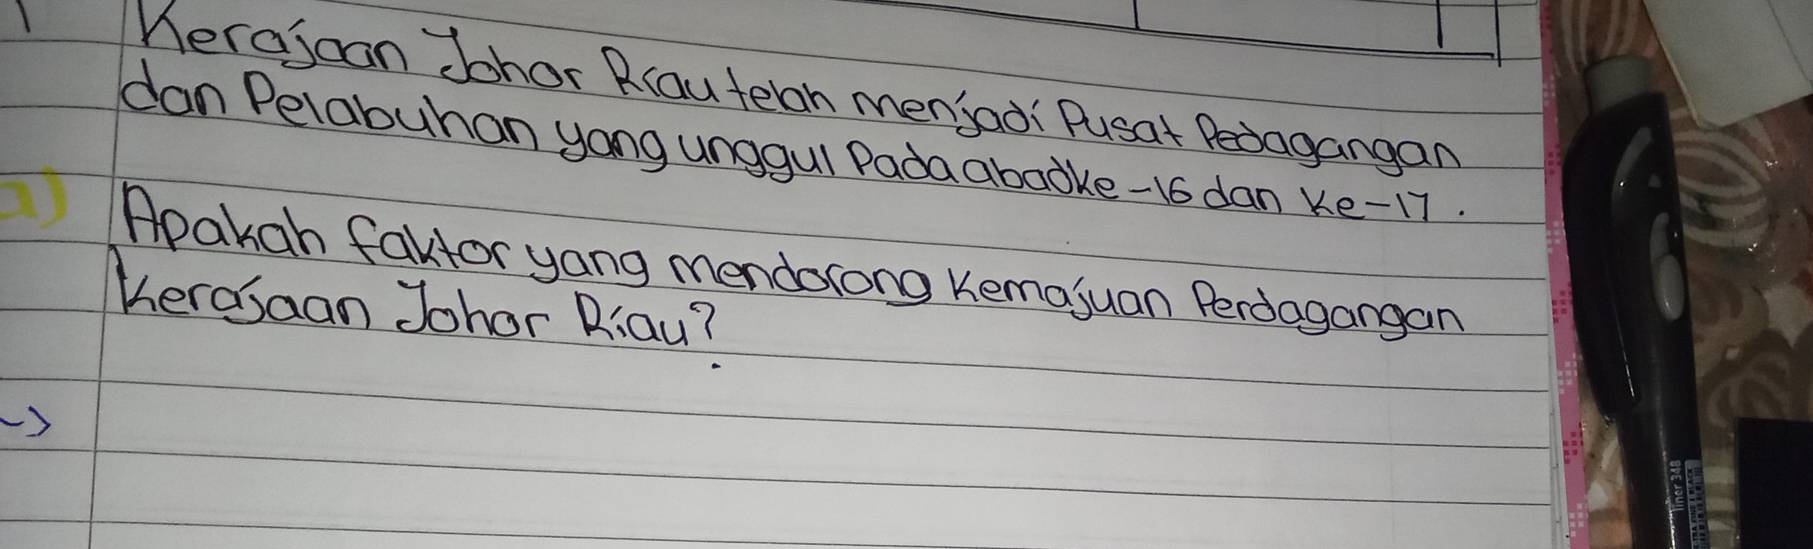 1 Kerajaan Johor Riau telah menjadi Pusat Pedagangan
dan Pelabuhan yang unggul Pada abad ke-16 dan ke-17.
a) Apakah faktor yang mendorong kemajuan Perdagangan
Kerajaan Johor Riau?
->
liner 348